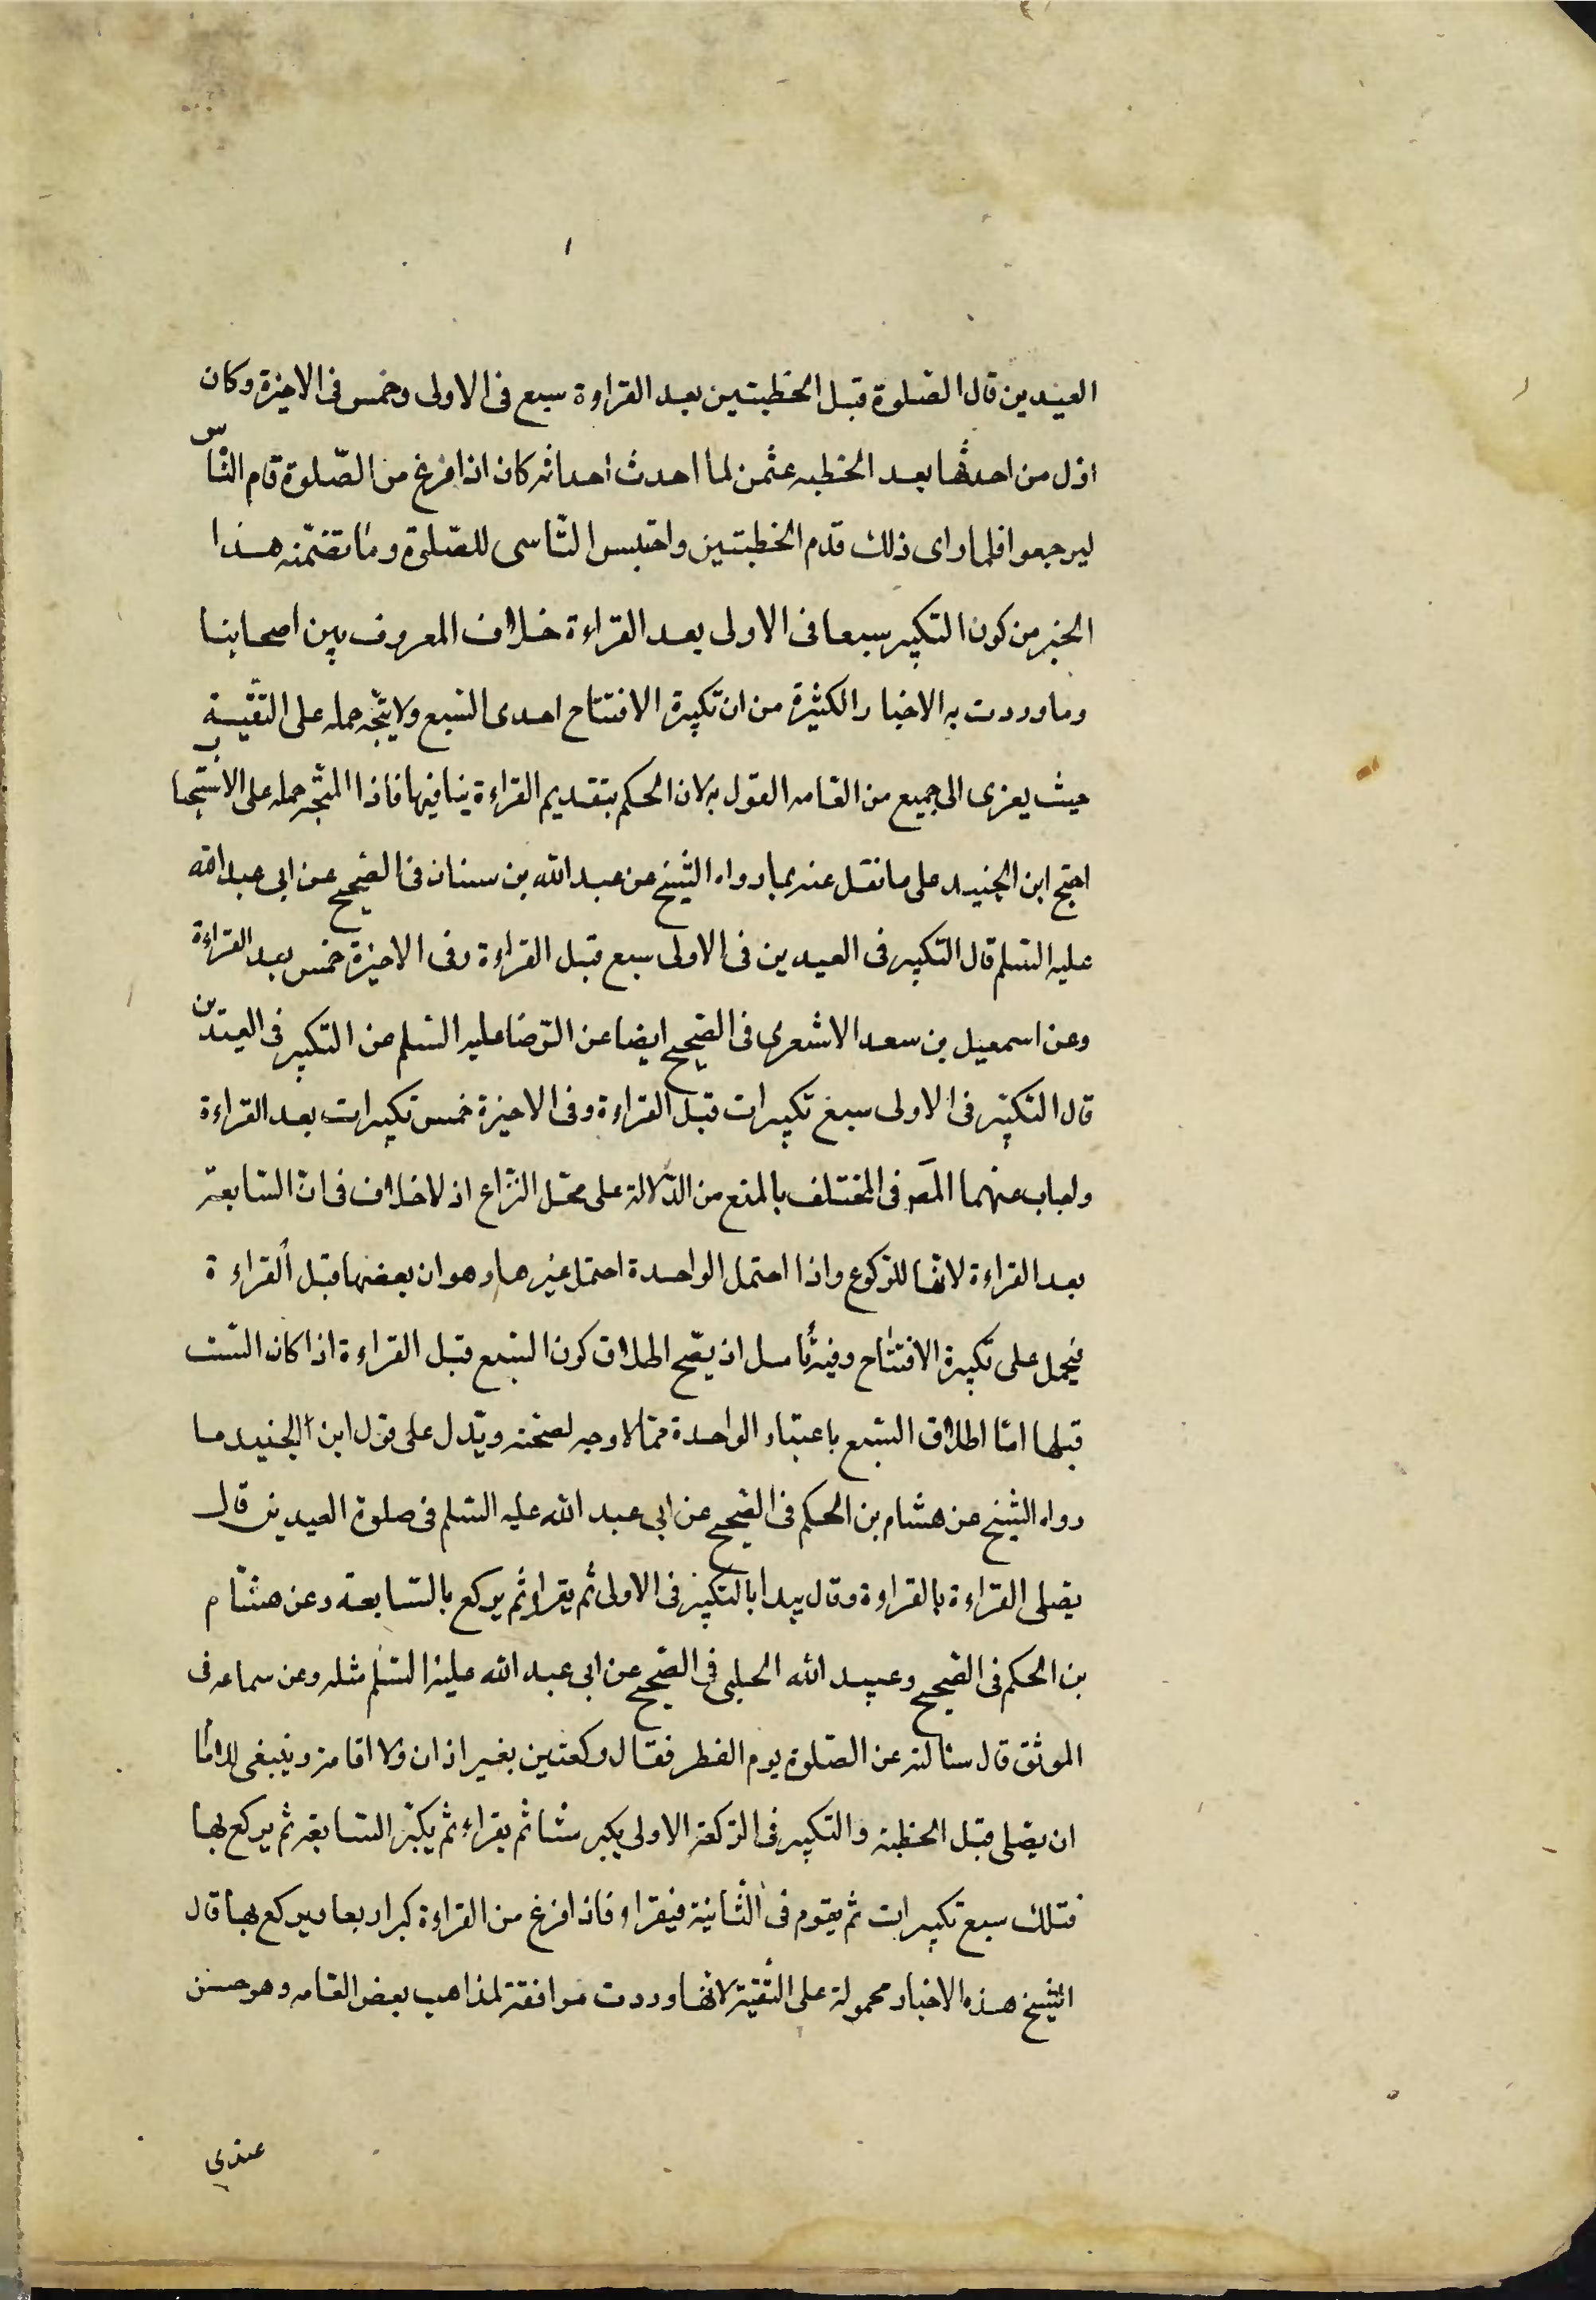 العيدين قال الصّلوة قبل الخطبتين بعد القراوة سبع فى الاولى وخمس فى الاخيرة وكان
اوّل من احدثها بعد الخطبه عثمن لما احدث احداثه كان اذا فرغ من الصّلوة قام النّاس
ليرجعوا فلما راى ذلك قدّم الخطبتين واحتبس النّاسى للصّلوة وما تضمّنه هذا
الخبر من كون التكبير سبعا فى الاولى بعد القراءة خلاف المعروف بين اصحابنا
وما وردت به الاخبار الكثيرة من ان تكبيرة الافتتاح احدى السّبع ولا يتّجه حمله على التّقيّة
حيث يعزى الى جميع من العامه القول به لان الحكم بتقديم القراءة ينافيها فاذا المتّجه حمله على الاستحباب
احتج ابن الجنيد على ما نقل عنه بما رواه الشّيخ عن عبد الله بن سنان فى الصّحيح عن ابى عبد الله
عليه السّلم قال التكبير فى العيدين فى الاولى سبع قبل القراءة وفى الاخيرة خمس بعد القراءة
وعن اسمعيل بن سعد الاشعرى فى الصّحيح ايضا عن الرّضا عليه السّلم عن التكبير فى العيدين
قال التكبير فى الاولى سبع تكبيرات قبل القراءة وفى الاخيرة خمس تكبيرات بعد القراءة
واجاب عنهما المصَ فى المختلف بالمنع من الدّلالة على محّل النّزاع اذ لا خلاف فى انّ السّابعة
بعد القراءة لانها للرّكوع واذا احتمل الواحدة احتمل غيرها وهو ان بعضها قبل القراءة
فيحمل على تكبيرة الافتتاح وفيه تأمل اذ يصّح اطلاق كون السّبع قبل القراءة اذا كان السّت
قبلها امّا اطلاق السّبع باعتبار الواحدة ممّا لا وجه لصحّته ويّدل على قول ابن الجنيد ما
رواه الشّيخ عن هشام بن الحكم فى الصّحيح عن ابى عبد الله عليه السّلم فى صلوة العيدين قال
يصلى القراءة بالقراوة وقال يبدا بالتكبير فى الاولى ثم يقرا وثم يركع بالسّابعة وعن هشام
بن الحكم فى الصّحيح وعبيد الله الحلبى فى الصّحيح عن ابى عبد الله عليه السّلم مثله وعن سماعه فى
الموثق قال سئالته عن الصّلوة يوم الفطر فقال ركعتين بغير اذان ولا اقامة وينبغى للاما
ان يصّلى قبل الخطبة والتكبير فى الرّكعة الاولى يكبر ستا ثم يقراء ثم يكبّر السّابعة ثم يركع بها
فتلك سبع تكبيرات ثم يقوم فى الثّانية فيقرا وفاذا فرغ من القراءة كبر اربعا ويركع بها قال
الشّيخ هذه الاخبار محمولة على التّقيّة لانّها وردت موافقة لمذاهب بعض العامه وهو حسن
عندى